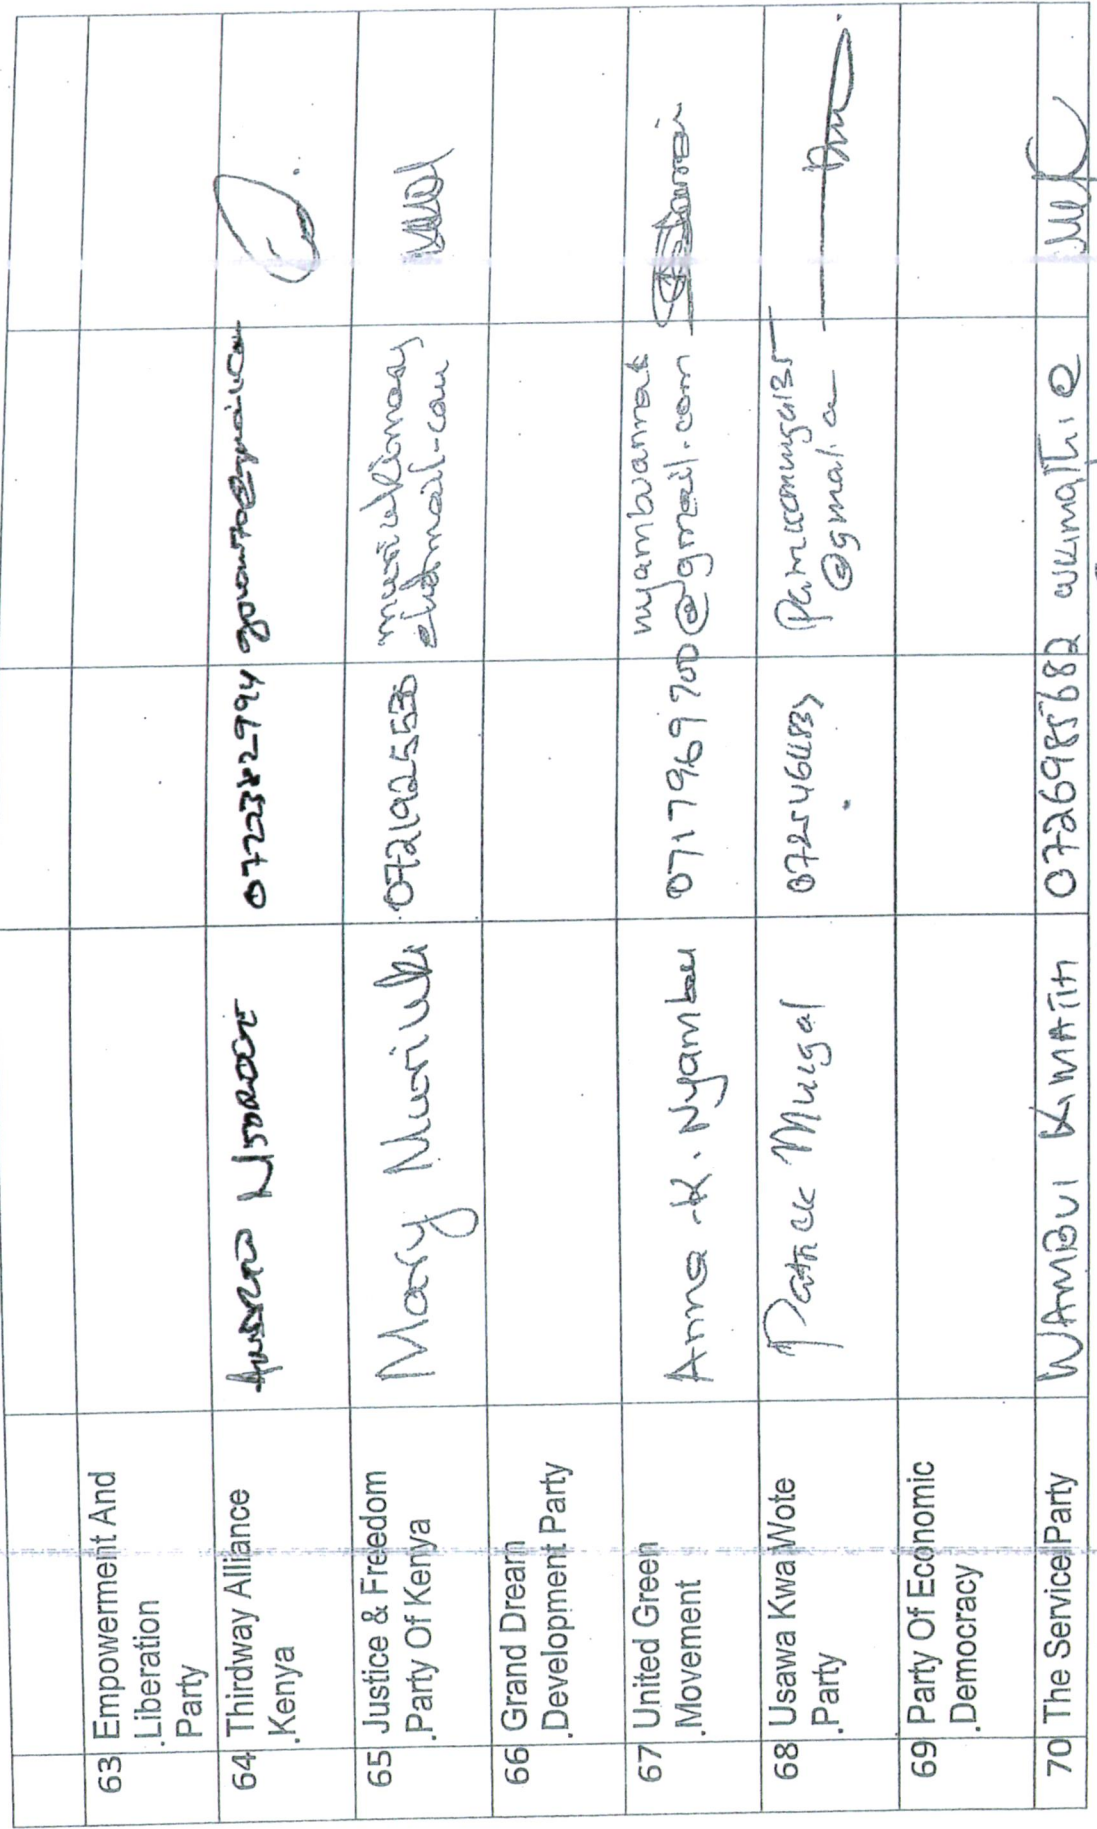 63. Empowerment And
Liberation
Party
64. Thirdway Alliance
Kenya
NJOROGE 0722382794
65. Justice & Freedom
Party Of Kenya
Mary Muriuki 0721925530 muriukimary
@hotmail.com
66. Grand Dream
Development Party
67. United Green
Movement
Anna K. Nyambu 0717969700 nyambuannak
@gmail.com
68. Usawa Kwa Wote
Party
Patrick Mugai
69. Party Of Economic
Democracy
70 The Service Party WAMBUI KIMATHI 0726985682 wkimathi@